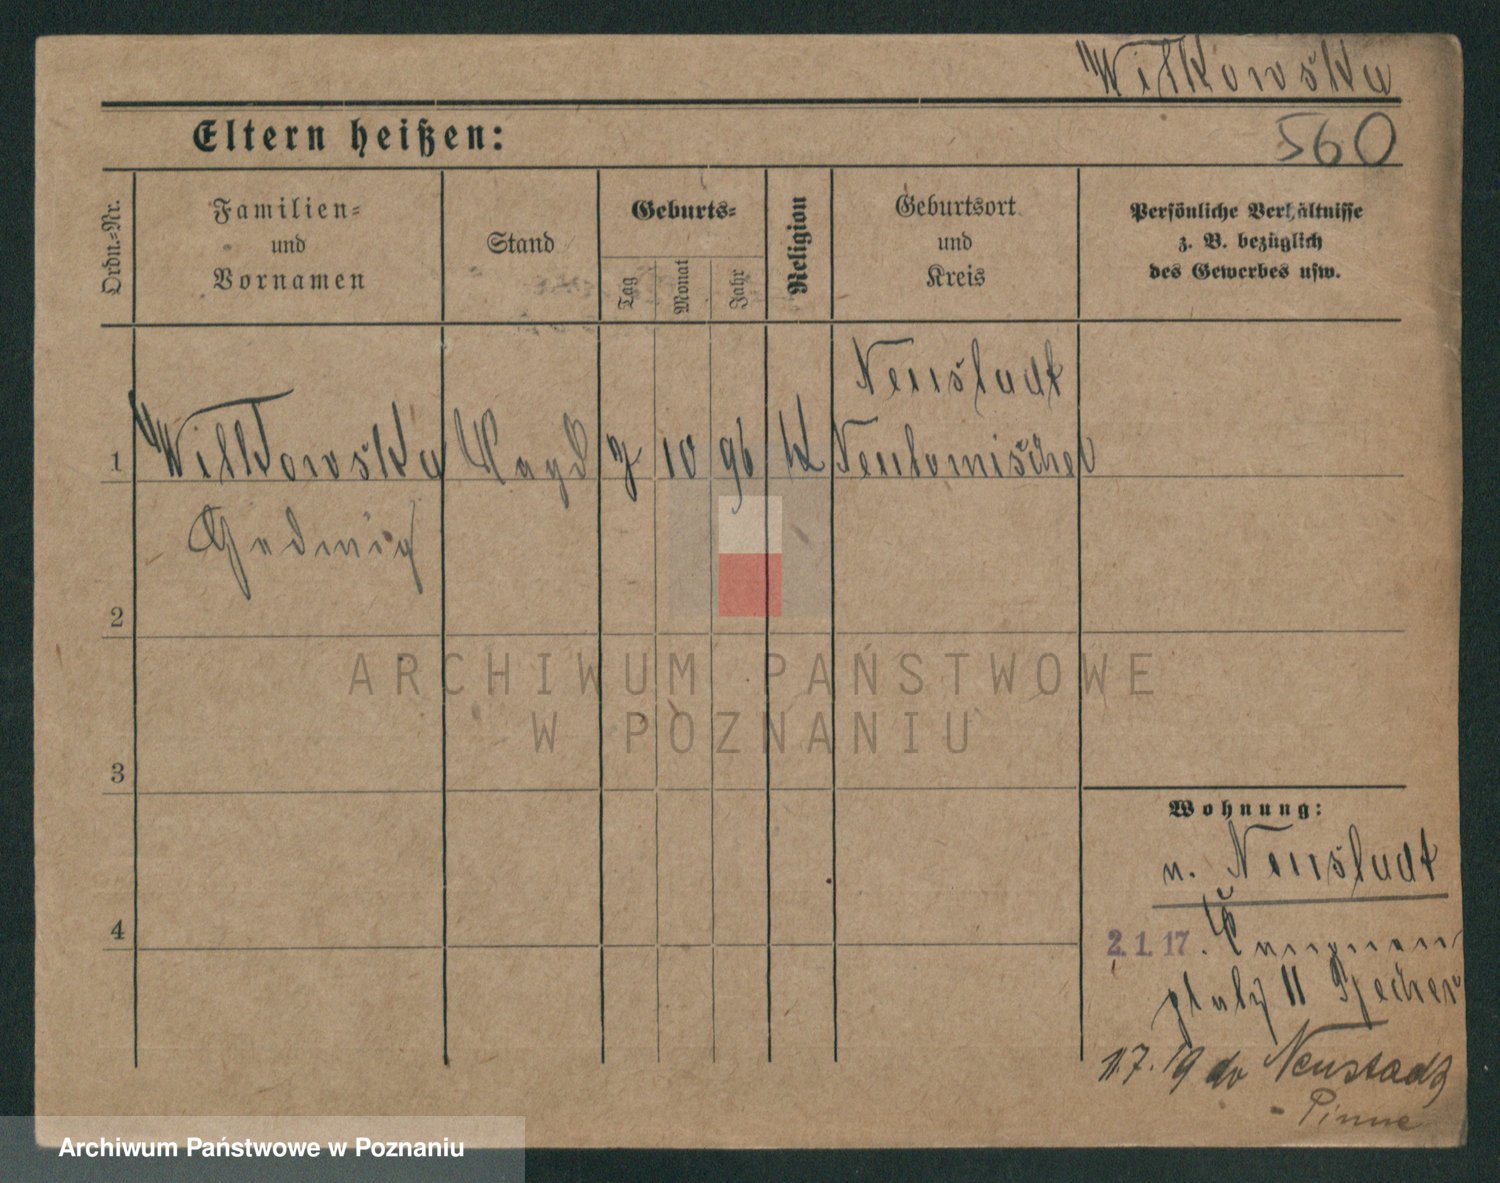 Witkowska
560
Eltern heißen:
Ordn.=Nr.
Familien=
und
Vornamen
Stand
Geburts=
Tag
Monat
Jahr
Religion
Geburtsort
und
Kreis
Persönliche Verhältnisse
z. B. bezüglich
des Gewerbes usw.
Neustadt
1 Witkowska 10 96 k Neutomischel
Hedwig
2
3
4
Wohnung:
n. Neustadt
2. 1. 17.
platz 11
11.7.19 do Neustadt
- Pinne
ARCHIWUM PAŃSTWOWE
W POZNANIU
Archiwum Państwowe w Poznaniu